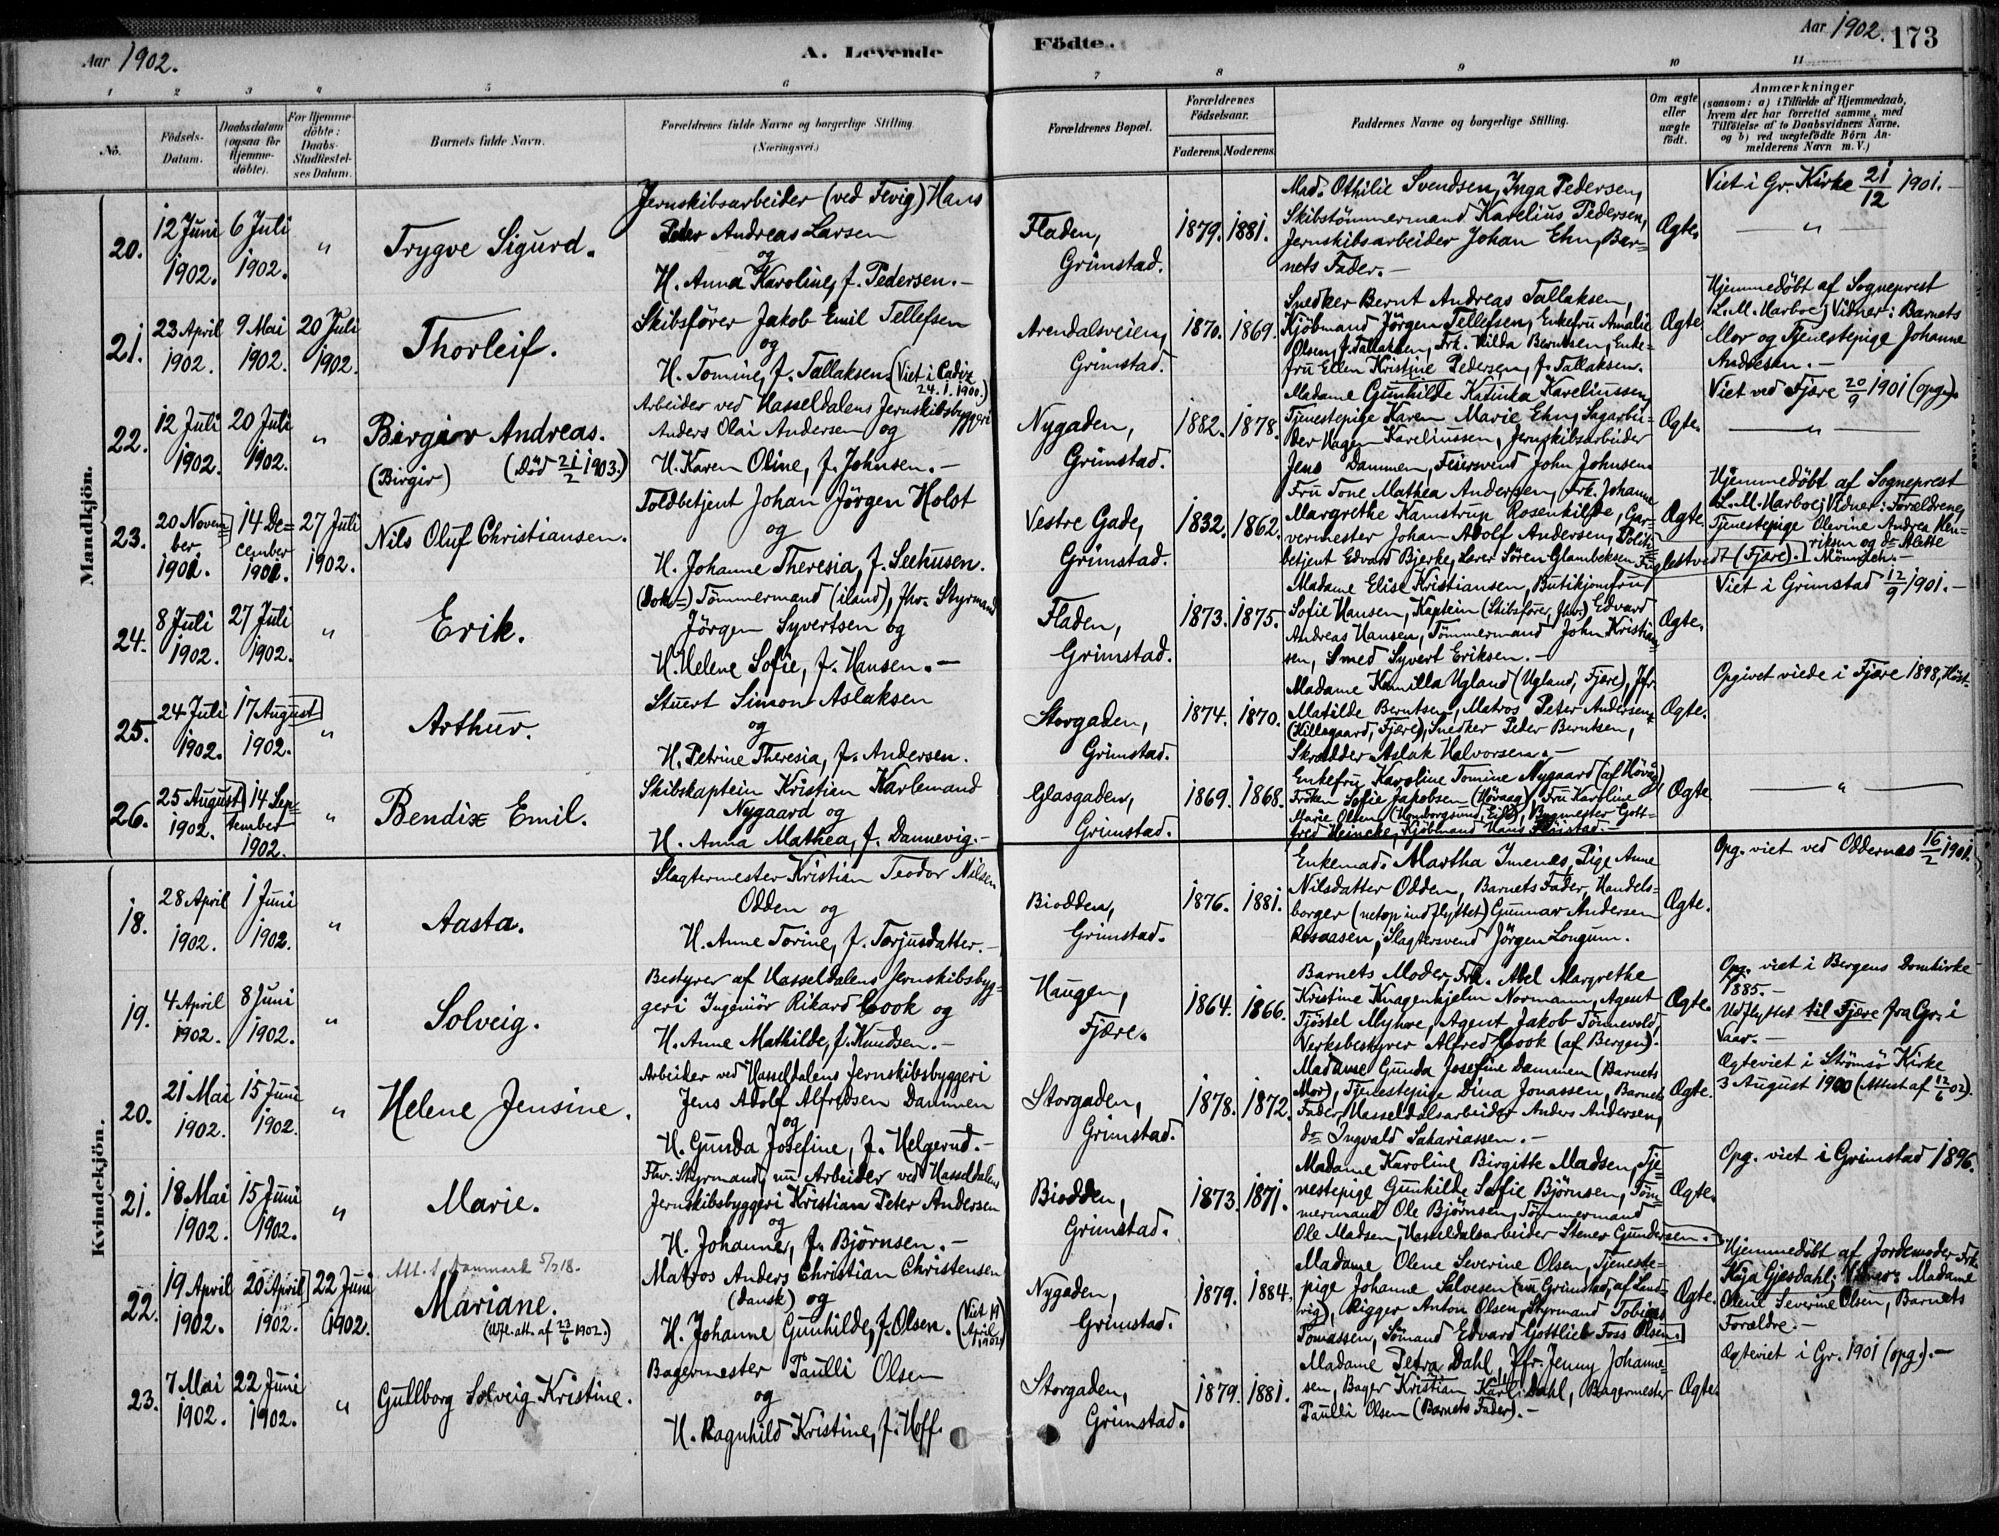 Aar 1902.
A. Levende Födte.
Aar 1902. 173
1 2 3 4 5 6 7 8 9 10 11
No.
Födsels-Datum.
Daabsdatum (ogsaa for Hjemmedöbte).
For Hjemmedöbte: Daabs-Stadfæstelses Datum.
Barnets fulde Navn.
Forældrenes fulde Navne og borgerlige Stilling (Næringsvei.)
Forældrenes Bopæl.
Forældrenes Födselsaar.
Faderens. Moderens.
Faddernes Navne og borgerlige Stilling.
Om ægte eller uægte födt.
Anmærkninger
(saasom: a) i Tilfælde af Hjemmedaab, hvem der har forrettet samme, med Tilföielse af to Daabsvidners Navne, og b) ved uægtefödte Börn Anmelderens Navn m. V.)
Mandkjön.
20. 12 Juni 1902. 6 Juli 1902. "
Trygve Sigurd.
Jernskibsarbeider (ved Fevig) Hans
Peder Andreas Larsen
og
H. Anna Karoline, f. Pedersen.-
Fladen, Grimstad.
1879. 1881.
Mad. Othilie Svendsen, Inga Pedersen,
Skibstömmermand Karelius Pedersen,
Jernskibsarbeider Johan Ehn, Bar-
nets Fader.-
Ægte.
Viet i Gr. Kirke 21/12 1901.-
"
21. 23 April 1902. 9 Mai 1902. 20 Juli 1902.
Thorleif.
Skibsförer Jakob Emil Tellefsen
og
H. Tomine, f. Tallaksen. (Viet i Cadiz
24.1.1900.)
Arendalsveien, Grimstad.
1870. 1869.
Snedker Bernt Andreas Tallaksen,
Kjöbmand Jörgen Tellefsen, Enkefru Amalie
Olsen, f. Tallaksen, Frk. Hilda Berntsen, Enke-
fru Ellen Kristine Pedersen, f. Tallaksen.
Ægte.
Hjemmedöbt af Sogneprest
L. M. Harboe; Vidner: Barnets
Mor og Tjenestepige Johanne
Andresen.-
22. 12 Juli 1902. 20 Juli 1902. "
Birger Andreas.
(Birgir) (Död 21/2 1903.)
Arbeider ved Hasseldalens Jernskibsbyggeri
Anders Olai Andersen og
H. Karen Oline, f. Johnsen.-
Nygaden, Grimstad.
1882. 1878.
Madame Gunhilde Katinka Karelinssen,
Tjenestepige Karen Marie Ehn, Sagarbei-
der Hagen Karelinssen, Jernskibsarbeider
Jens Dammen, Feiersvend John Johnsen.
Ægte.
Viet ved Fjære 20/9 1901 (opg).
"
23. 20 November 1901. 14 December 1901. 27 Juli 1902.
Nils Oluf Christiansen.
Toldbetjent Johan Jörgen Holst
og
H. Johanne Theresia, f. Seehusen.
Vestre Gade, Grimstad.
1832. 1862.
Fru Tone Mathea Andersen, Frk. Johanne
Margrethe Kamstrup Rosenkilde, Gar-
vermester Johan Adolf Andersen, Politi-
betjent Edvard Bjerke, Lærer Sören Glambeksen Fuglestvedt (Fjære).
Ægte.
Hjemmedöbt af Sogneprest
L. M. Harboe; Vidner: Forældrene,
Tjenestepige Olevine Andrea Hen-
riksen og do Alette
Mönnich.-
24. 8 Juli 1902. 27 Juli 1902. "
Erik.
(Dok=) Tömmermand (iland), fhv. Styrmand
Jörgen Syvertsen og
H. Helene Sofie, f. Hansen.-
Fladen, Grimstad.
1873. 1875.
Madame Elise Kristiansen, Butikjomfru
Sofie Hansen, Kaptein (Skibsförer, fhv.) Edvard
Andreas Hansen, Tömmermand John Kristian-
sen, Smed Syvert Eriksen.-
Ægte.
Viet i Grimstad 12/9 1901.-
25. 24 Juli 1902. 17 August 1902. "
Arthur.
Stuert Simon Aslaksen
og
H. Petrine Theresia, f. Andersen.
Storgaden, Grimstad.
1874. 1870.
Madame Kamilla Ugland (Ugland, Fjære), Jfr.
Matilde Berntsen, Matros Peter Andersen
(Hillegaard, Fjære), Snedker Peder Berntsen,
Skrædder Aslak Halvorsen.-
Ægte.
Opgivet viede i Fjære 1898, Höst-
26. 25 August 1902. 14 September 1902. "
Bendix Emil.
Skibskaptein Kristian Karlemand
Nygaard og
H. Anna Mathea, f. Dannevig.-
Glasgaden, Grimstad.
1869. 1868.
Enkefru Karoline Tomine Nygaard (af Hövåg),
Fröken Sofie Jakobsen (Hövaag), Fru Karoline
Marie Olsen (Homborgsund, Eide), Bagmester Gott-
fred Heincke, Kjöbmand Hans Flöistad.-
Ægte
"
Kvindekjön.
18. 28 April 1902. 1 Juni 1902. "
Aasta.
Slagtermester Kristian Teodor Nilsen
Odden og
H. Anne Torine, f. Torjusdatter.-
Biodden, Grimstad.
1876. 1881.
Enkemad. Martha Imenes, Pige Anne
Nilsdatter Odden, Barnets Fader, Handels-
borger (netop indflyttet) Gunnar Andersen
Rosaasen, Slagtersvend Jörgen Longum.
Ægte.
Opg. viet ved Oddernes 16/2 1901.
19. 4 April 1902. 8 Juni 1902. "
Solveig.
Bestyrer af Hasseldalens Jernskibsbyg-
geri Ingeniör Rikard Cook og
H. Anne Mathilde, f. Knudsen.-
Haugen, Fjære.
1864. 1866.
Barnets Moder, Frk. Abel Margrethe
Kristine Knagenhjelm Normann, Agent
Tjöstel Myhre, Agent Jakob Tönnevold,
Verksbestyrer Alfred Cook (af Bergen).
Ægte.
Opg. viet i Bergens Domkirke
1885.-
Udflyttet til Fjære fra Gr. i
Vaar.-
20. 21 Mai 1902. 15 Juni 1902. "
Helene Jensine.
Arbeider ved Hasseldalens Jernskibsbyggeri
Jens Adolf Alfredsen Dammen
og
H. Gunda Josefine, f. Helgerud.-
Storgaden, Grimstad.
1878. 1872.
Madame Gunda Josefine Dammen (Barnets
Mor), Tjenestepige Dina Jonassen, Barnets
Fader, Hasseldalsarbeider Anders Andersen,
do Ingvald Sakariassen.-
Ægte.
Ægteviet i Strömsö Kirke
3 August 1900 (Attest af 12/6 02).
21. 18 Mai 1902. 15 Juni 1902. "
Marie.
Fhv. Styrmand, nu Arbeider ved Hasseldalens
Jernskibsbyggeri Kristian Peter Andersen
og
H. Johanne, f. Björnsen.-
Biodden, Grimstad.
1873. 1871.
Madame Karoline Birgitte Madsen, Tje-
nestepige Gunhilde Sofie Björnsen, Töm-
mermand Ole Björnsen, Tömmermand
Ole Madsen, Hasseldalsarbeider Stener Gundersen.-
Ægte.
Opg. viet i Grimstad 1896.
22. 19 April 1902. 20 April 1902. 22 Juni 1902.
Att. t. Danmark 5/7 18.
Mariane.
(Utfl.-att. af 23/6 1902.)
Matros Anders Christian Christensen
(dansk) og
H. Johanne Gunhilde, f. Olsen. (Viet 19 April 1902)
Nygaden, Grimstad.
1879. 1884.
Madame Olene Severine Olsen, Tjeneste-
pige Johanne Salvesen (nu Grimstad, af Land-
vig), Rigger Anton Olsen, Styrmand Tobias
Tomassen, Sömand Edvard Gottlieb Foss Olsen.
Ægte.
Hjemmedöbt af Jordemoder Frk.
Höja Gjesdahl; Vidner: Madame
Olene Severine Olsen, Barnets
Forældre.-
23. 7 Mai 1902. 22 Juni 1902. "
Gullborg Solveig Kristine.
Bagermester Paulli Olsen
og
H. Ragnhild Kristine, f. Hoff.
Storgaden, Grimstad.
1879. 1881.
Madame Petra Dahl, Jfr. Jenny Johanne-
sen, Bager Kristian Karl Dahl, Bagermester
Paulli Olsen (Barnets Fader).-
Ægte.
Ægteviet i Gr. 1901 (opg.).-